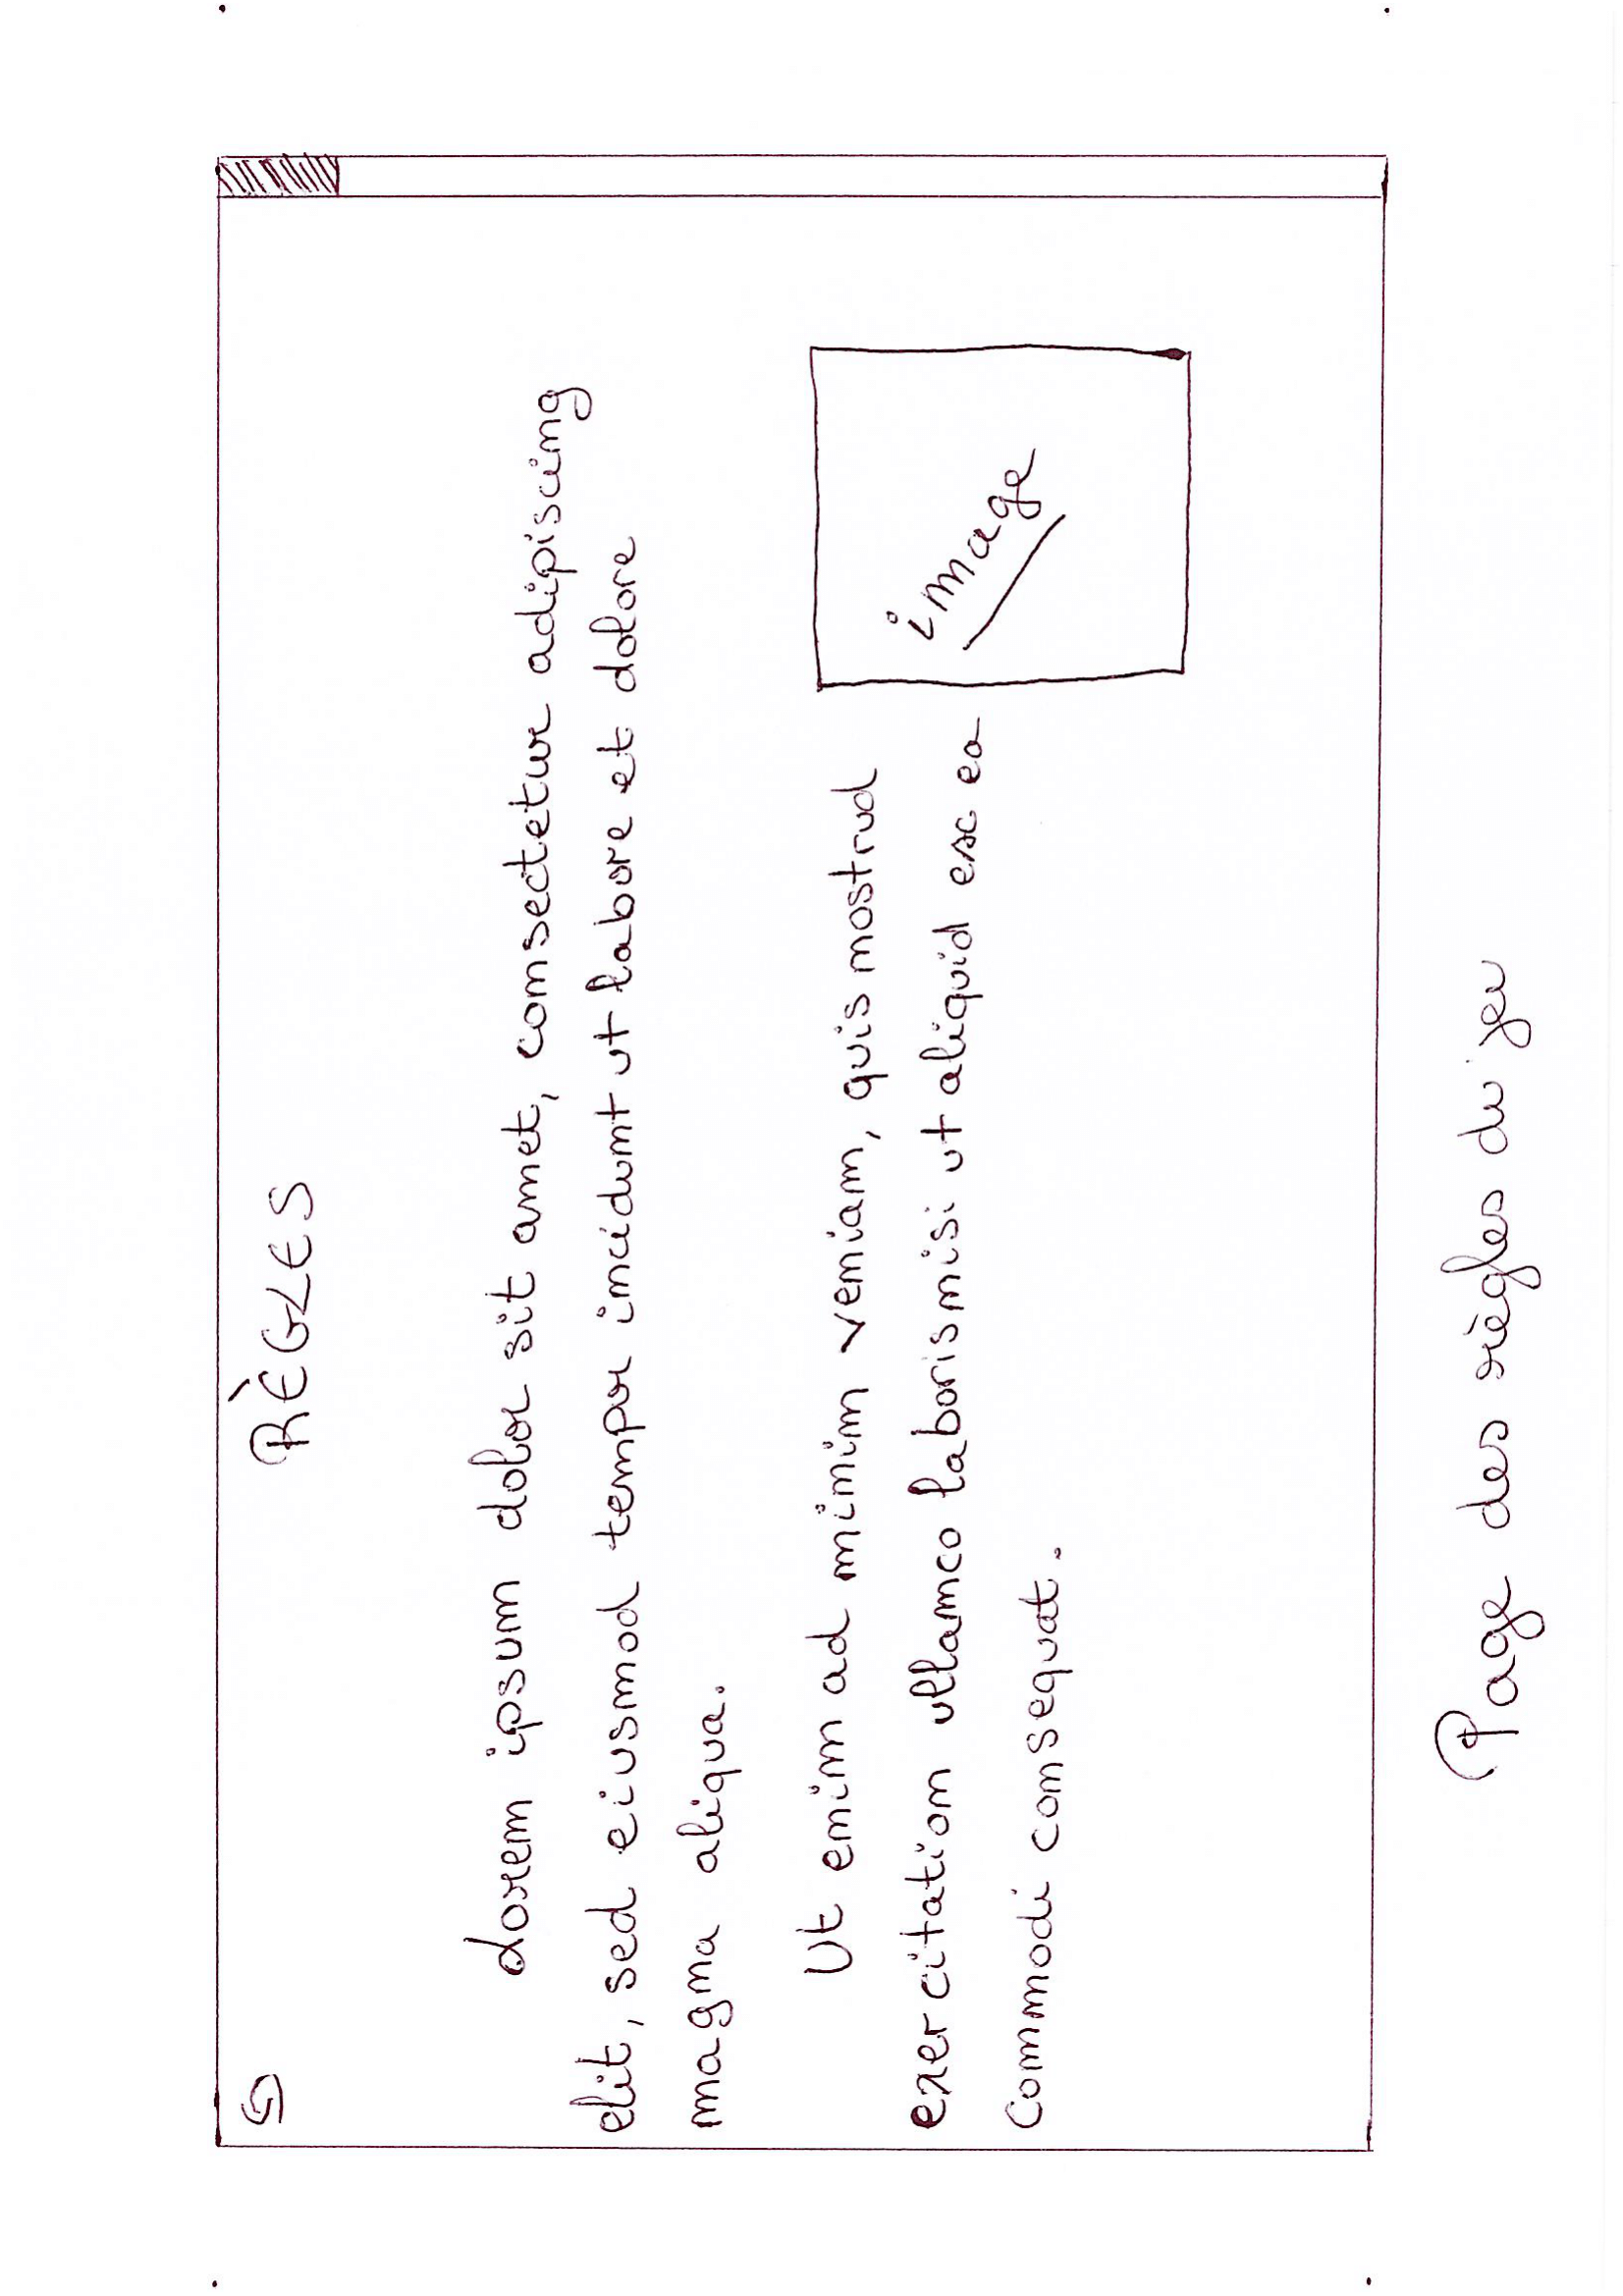 RÈGLES
Lorem ipsum dolor sit amet, consectetur adipiscing
elit, sed eiusmod tempor incidunt ut labore et dolore
magna aliqua.
Ut enim ad minim veniam, quis nostrud
exercitation ullamco laboris nisi ut aliquid ex ea
Commodi consequat.
image
Page des règles du jeu